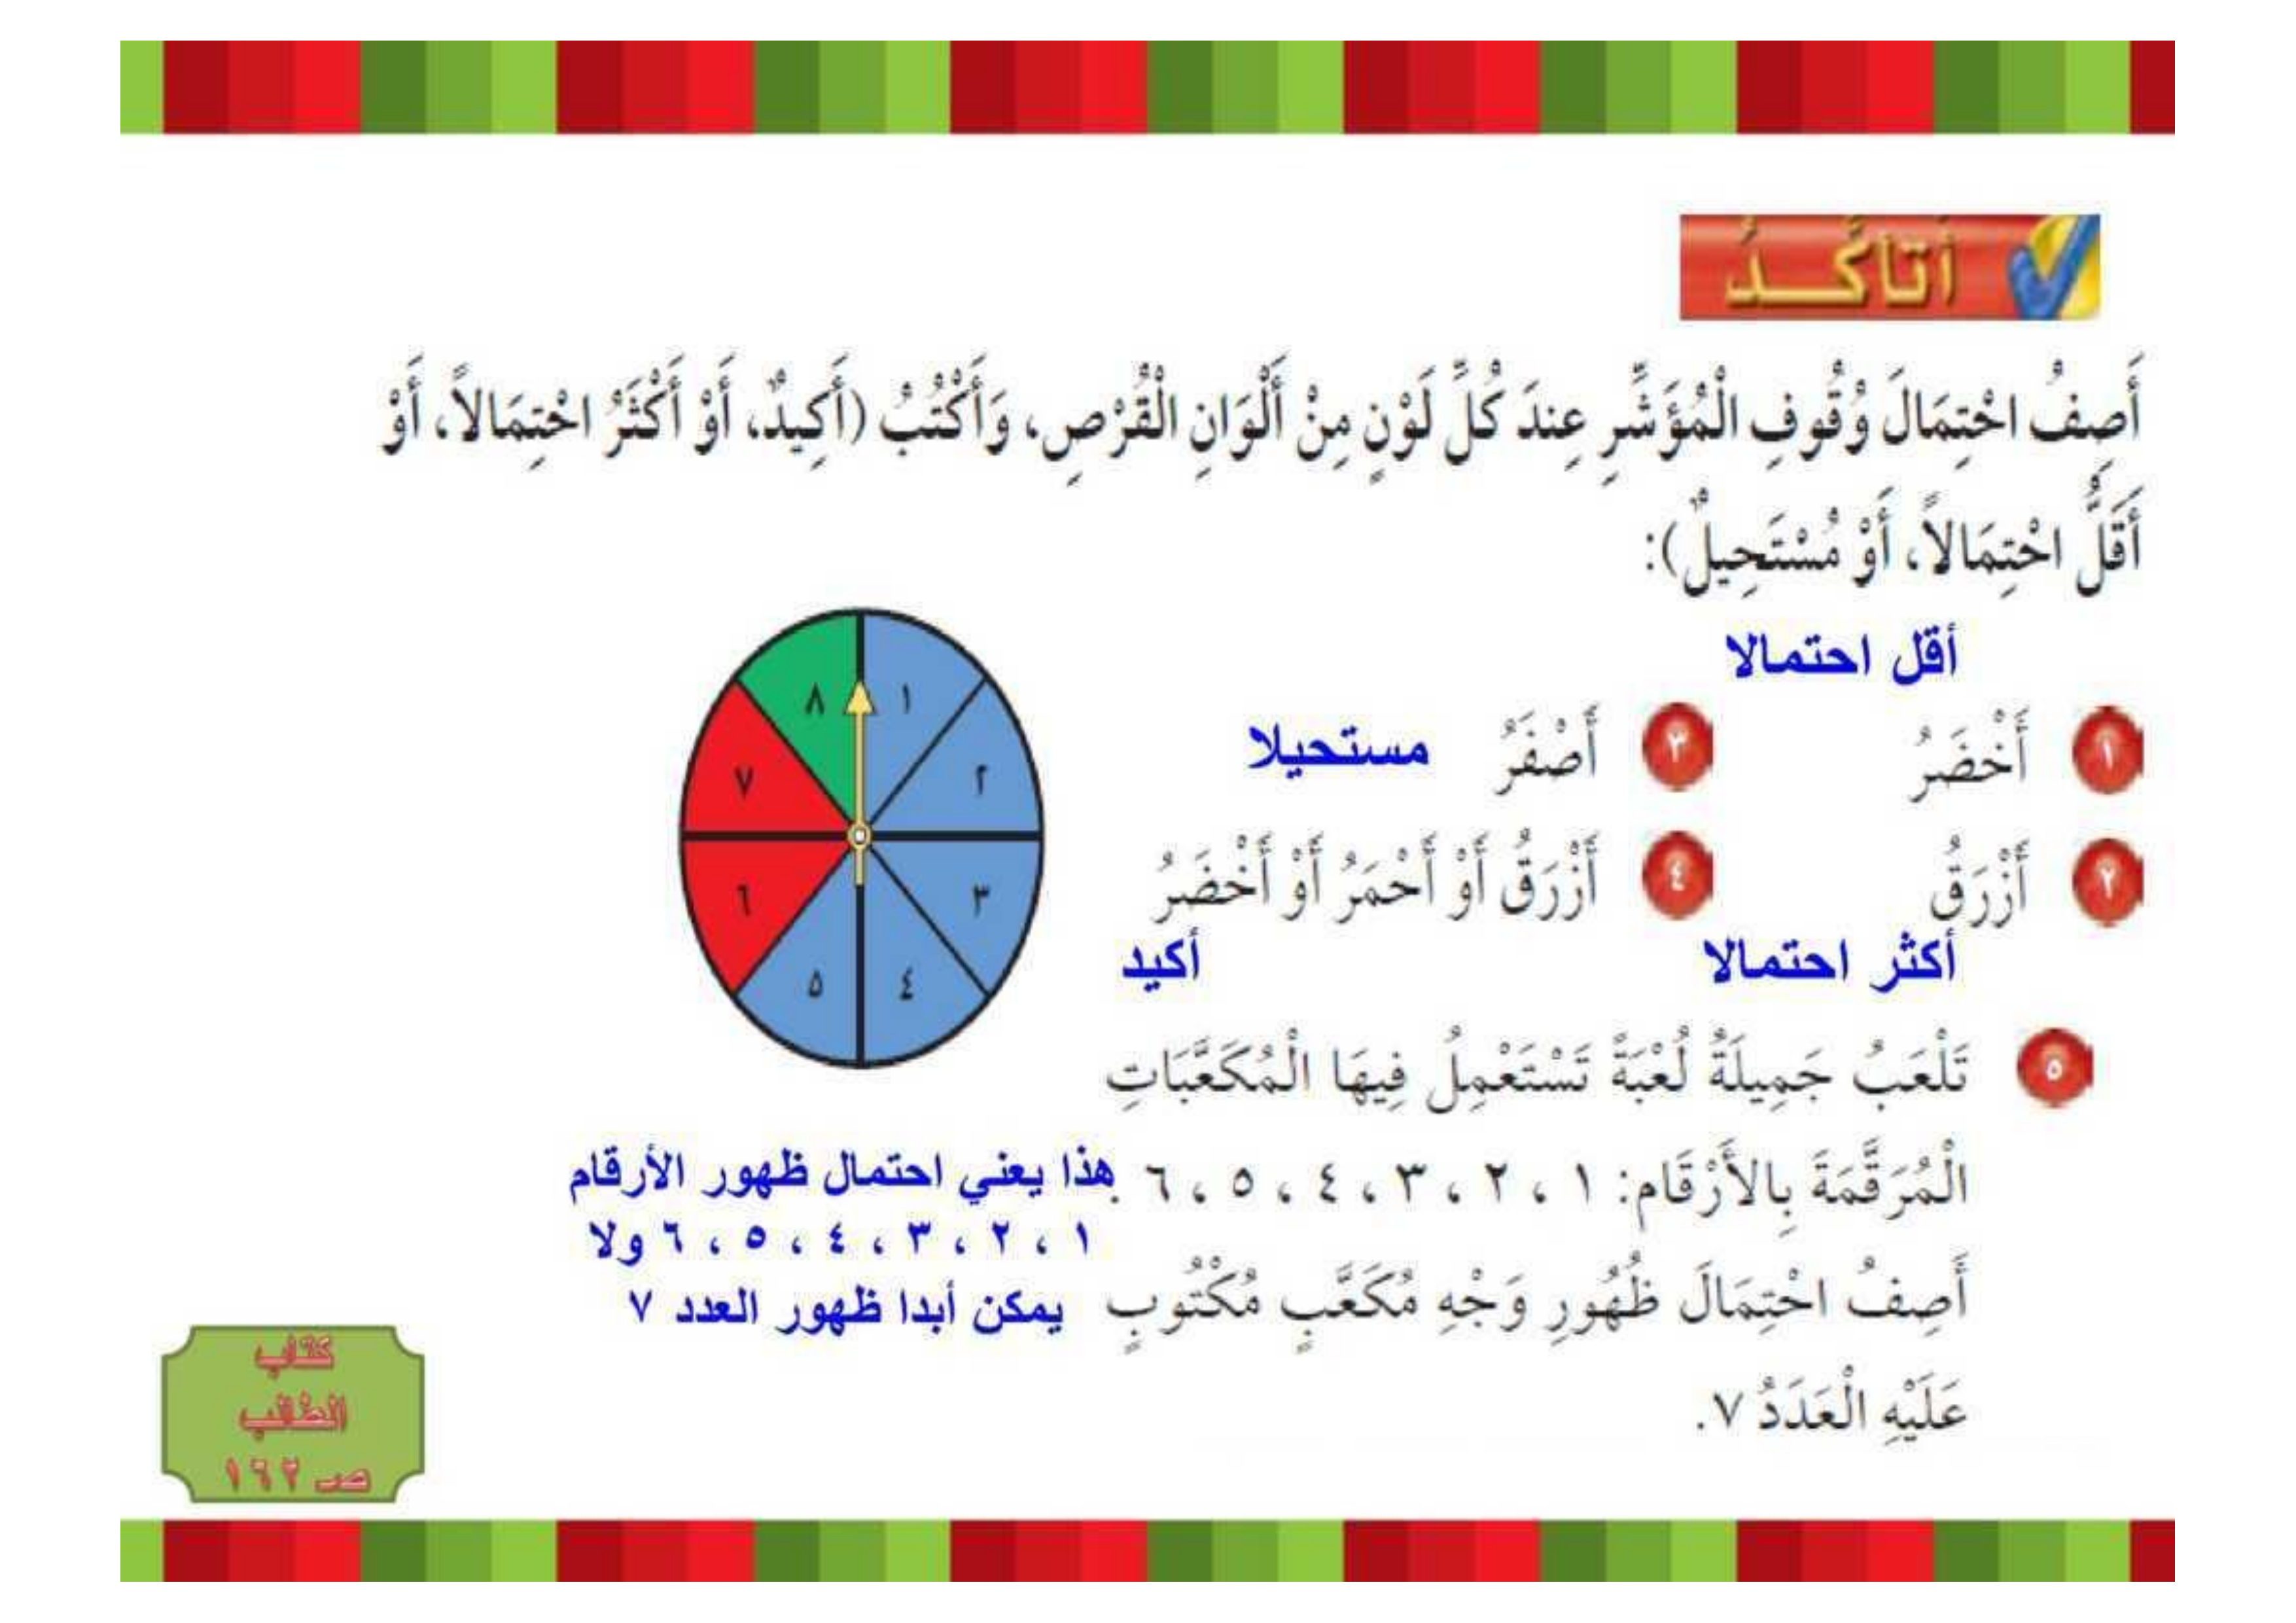 أَتأكَّـــدُ
أَصِفُ احْتِمَالَ وُقُوفِ الْمُؤَشِّرِ عِندَ كُلِّ لَوْنٍ مِنْ أَلْوَانِ الْقُرْصِ، وَأَكْتُبُ (أَكِيدٌ، أَوْ أَكْثَرُ احْتِمَالاً، أَوْ
أَقَلُّ احْتِمَالاً، أَوْ مُسْتَحِيلٌ):
أقل احتمالا
١ أَخْضَرُ
٣ أَصْفَرُ مستحيلا
٢ أَزْرَقُ
٤ أَزْرَقُ أَوْ أَحْمَرُ أَوْ أَخْضَرُ
أكثر احتمالا
أكيد
١
٢
٣
٤
٥
٦
٧
٨
٥ تَلْعَبُ جَمِيلَةُ لُعْبَةً تَسْتَعْمِلُ فِيهَا الْمُكَعَّبَاتِ
الْمُرَقَّمَةَ بِالأَرْقَامِ: ١ ، ٢ ، ٣ ، ٤ ، ٥ ، ٦ .
أَصِفُ احْتِمَالَ ظُهُورِ وَجْهِ مُكَعَّبٍ مُكْتُوبٍ
عَلَيْهِ الْعَدَدُ ٧.
هذا يعني احتمال ظهور الأرقام
١ ، ٢ ، ٣ ، ٤ ، ٥ ، ٦ ولا
يمكن أبدا ظهور العدد ٧
كتاب
الطالب
صـ ١٦٢